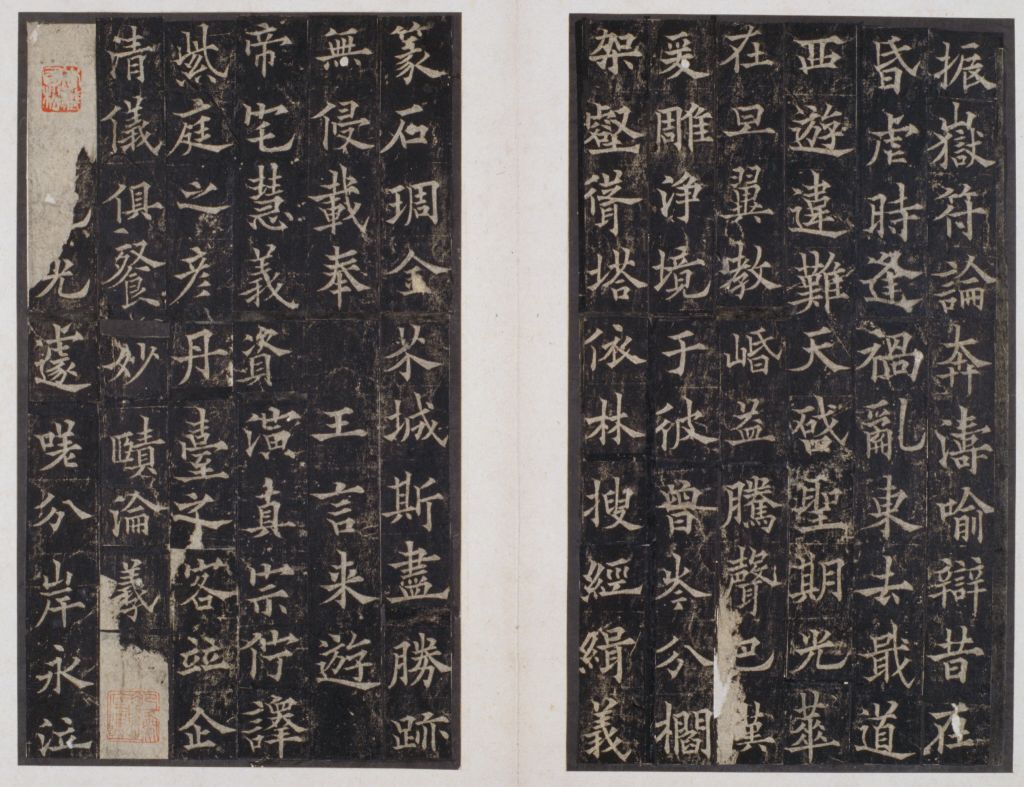 振嶽符論奔濤喻辯昔在
昏虐時逢禍亂東去戢道
西遊違難天啓聖期光華
在旦翼教崏益騰聲巴漢
爰雕淨境于彼曾岑分櫩
架壑聳塔依林搜經緝義
篆石琱金芥城斯盡勝跡
無侵載奉 王言来遊
帝宅慧義資演真宗佇譯
紫庭之彥丹臺之客竝企
清儀俱餐妙賾淪羲
光遽嗟分岸永泣